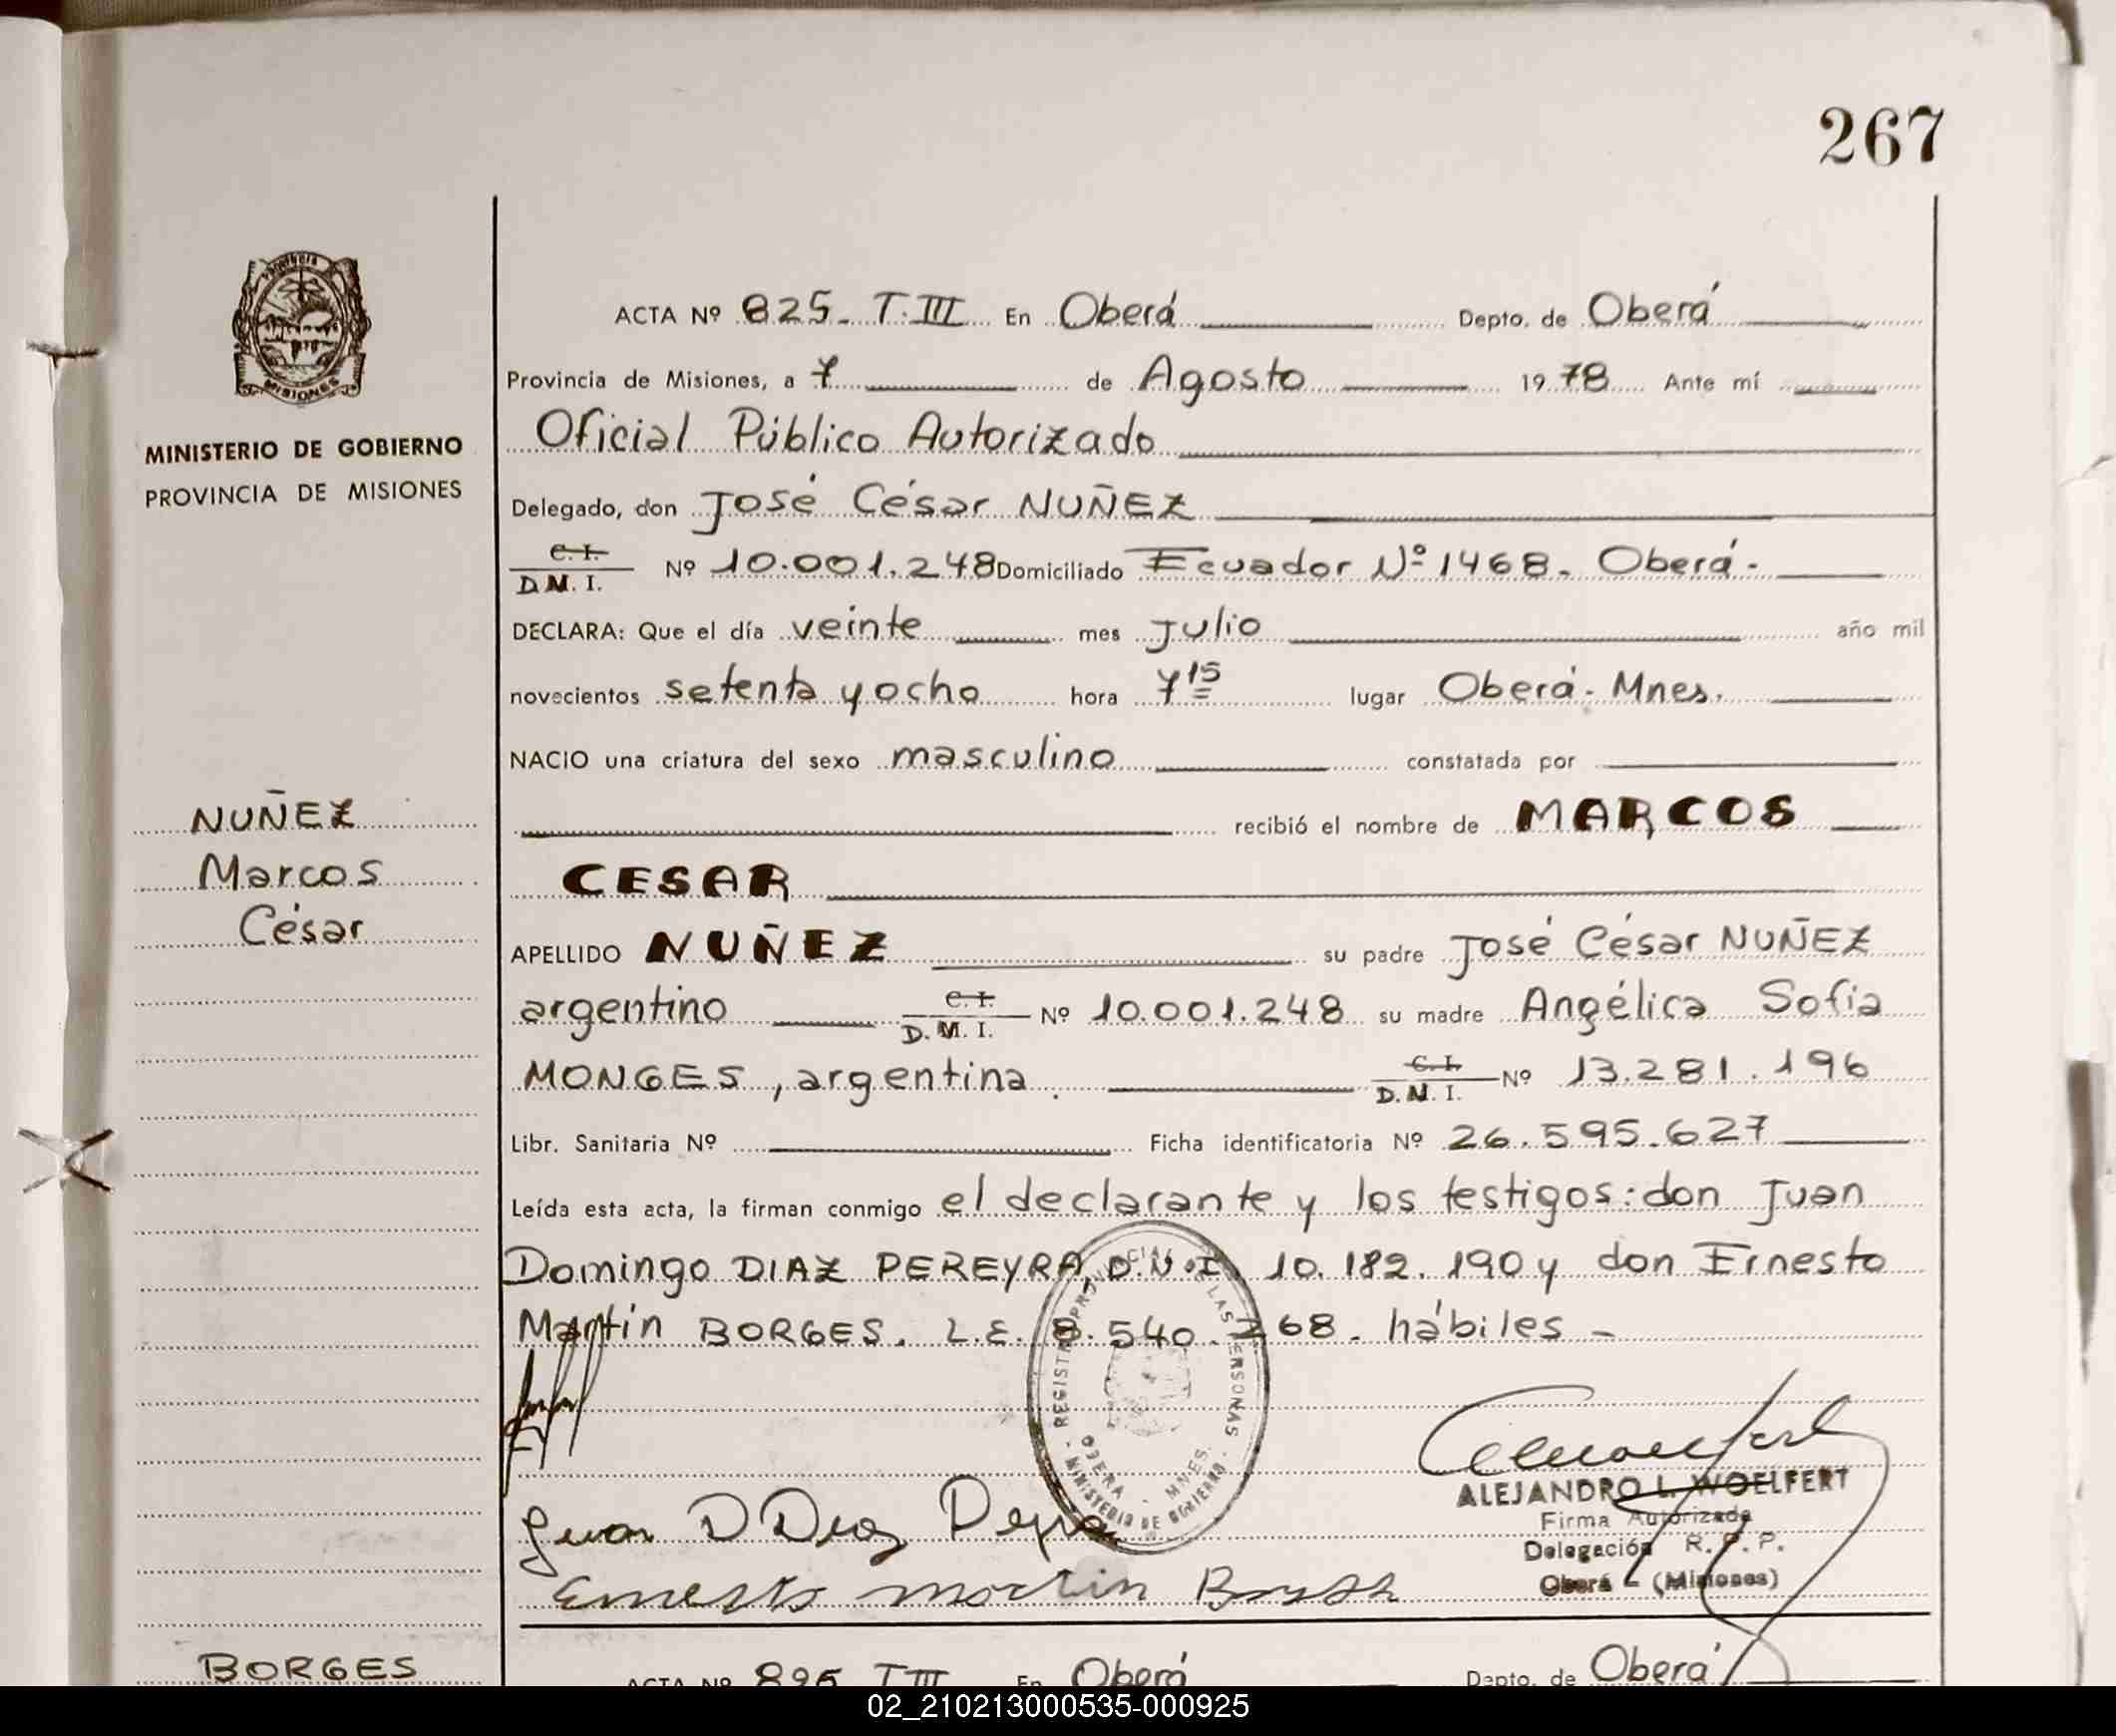 267
MISIONES
MINISTERIO DE GOBIERNO
PROVINCIA DE MISIONES
ACTA Nº 825 - T. III En Oberá Depto. de Oberá
Provincia de Misiones, a 7 de Agosto 1978 Ante mí
Oficial Público Autorizado
Delegado, don José César NUÑEZ
C. I.
D. M. I. Nº 10.001.248 Domiciliado Ecuador Nº 1468. Oberá.
DECLARA: Que el día veinte mes Julio año mil
novecientos setenta y ocho hora 7 15 lugar Oberá - Mnes.
NACIO una criatura del sexo masculino constatada por
recibió el nombre de MARCOS
CESAR
NUÑEZ
Marcos
César
APELLIDO NUÑEZ su padre José César NUÑEZ
argentino C. I. D. M. I. Nº 10.001.248 su madre Angélica Sofía
MONGES, argentina. C. I. D. M. I. Nº 13.281.196
Libr. Sanitaria Nº Ficha identificatoria Nº 26.595.627
Leída esta acta, la firman conmigo el declarante y los testigos: don Juan
Domingo DIAZ PEREYRA, D.N.I. 10.182.190 y don Ernesto
Martín BORGES. L.E. 8.540. 68. hábiles -
REGISTRO PROVINCIAL DE LAS PERSONAS
OBERA - MNES.
MINISTERIO DE GOBIERNO
ALEJANDRO L. WOELFERT
Firma Autorizada
Delegación R. P. P.
Oberá - (Misiones)
Juan D Diaz
Ernesto Martin
BORGES
ACTA Nº 826 T III En Oberá Depto. de Oberá
02_210213000535-000925